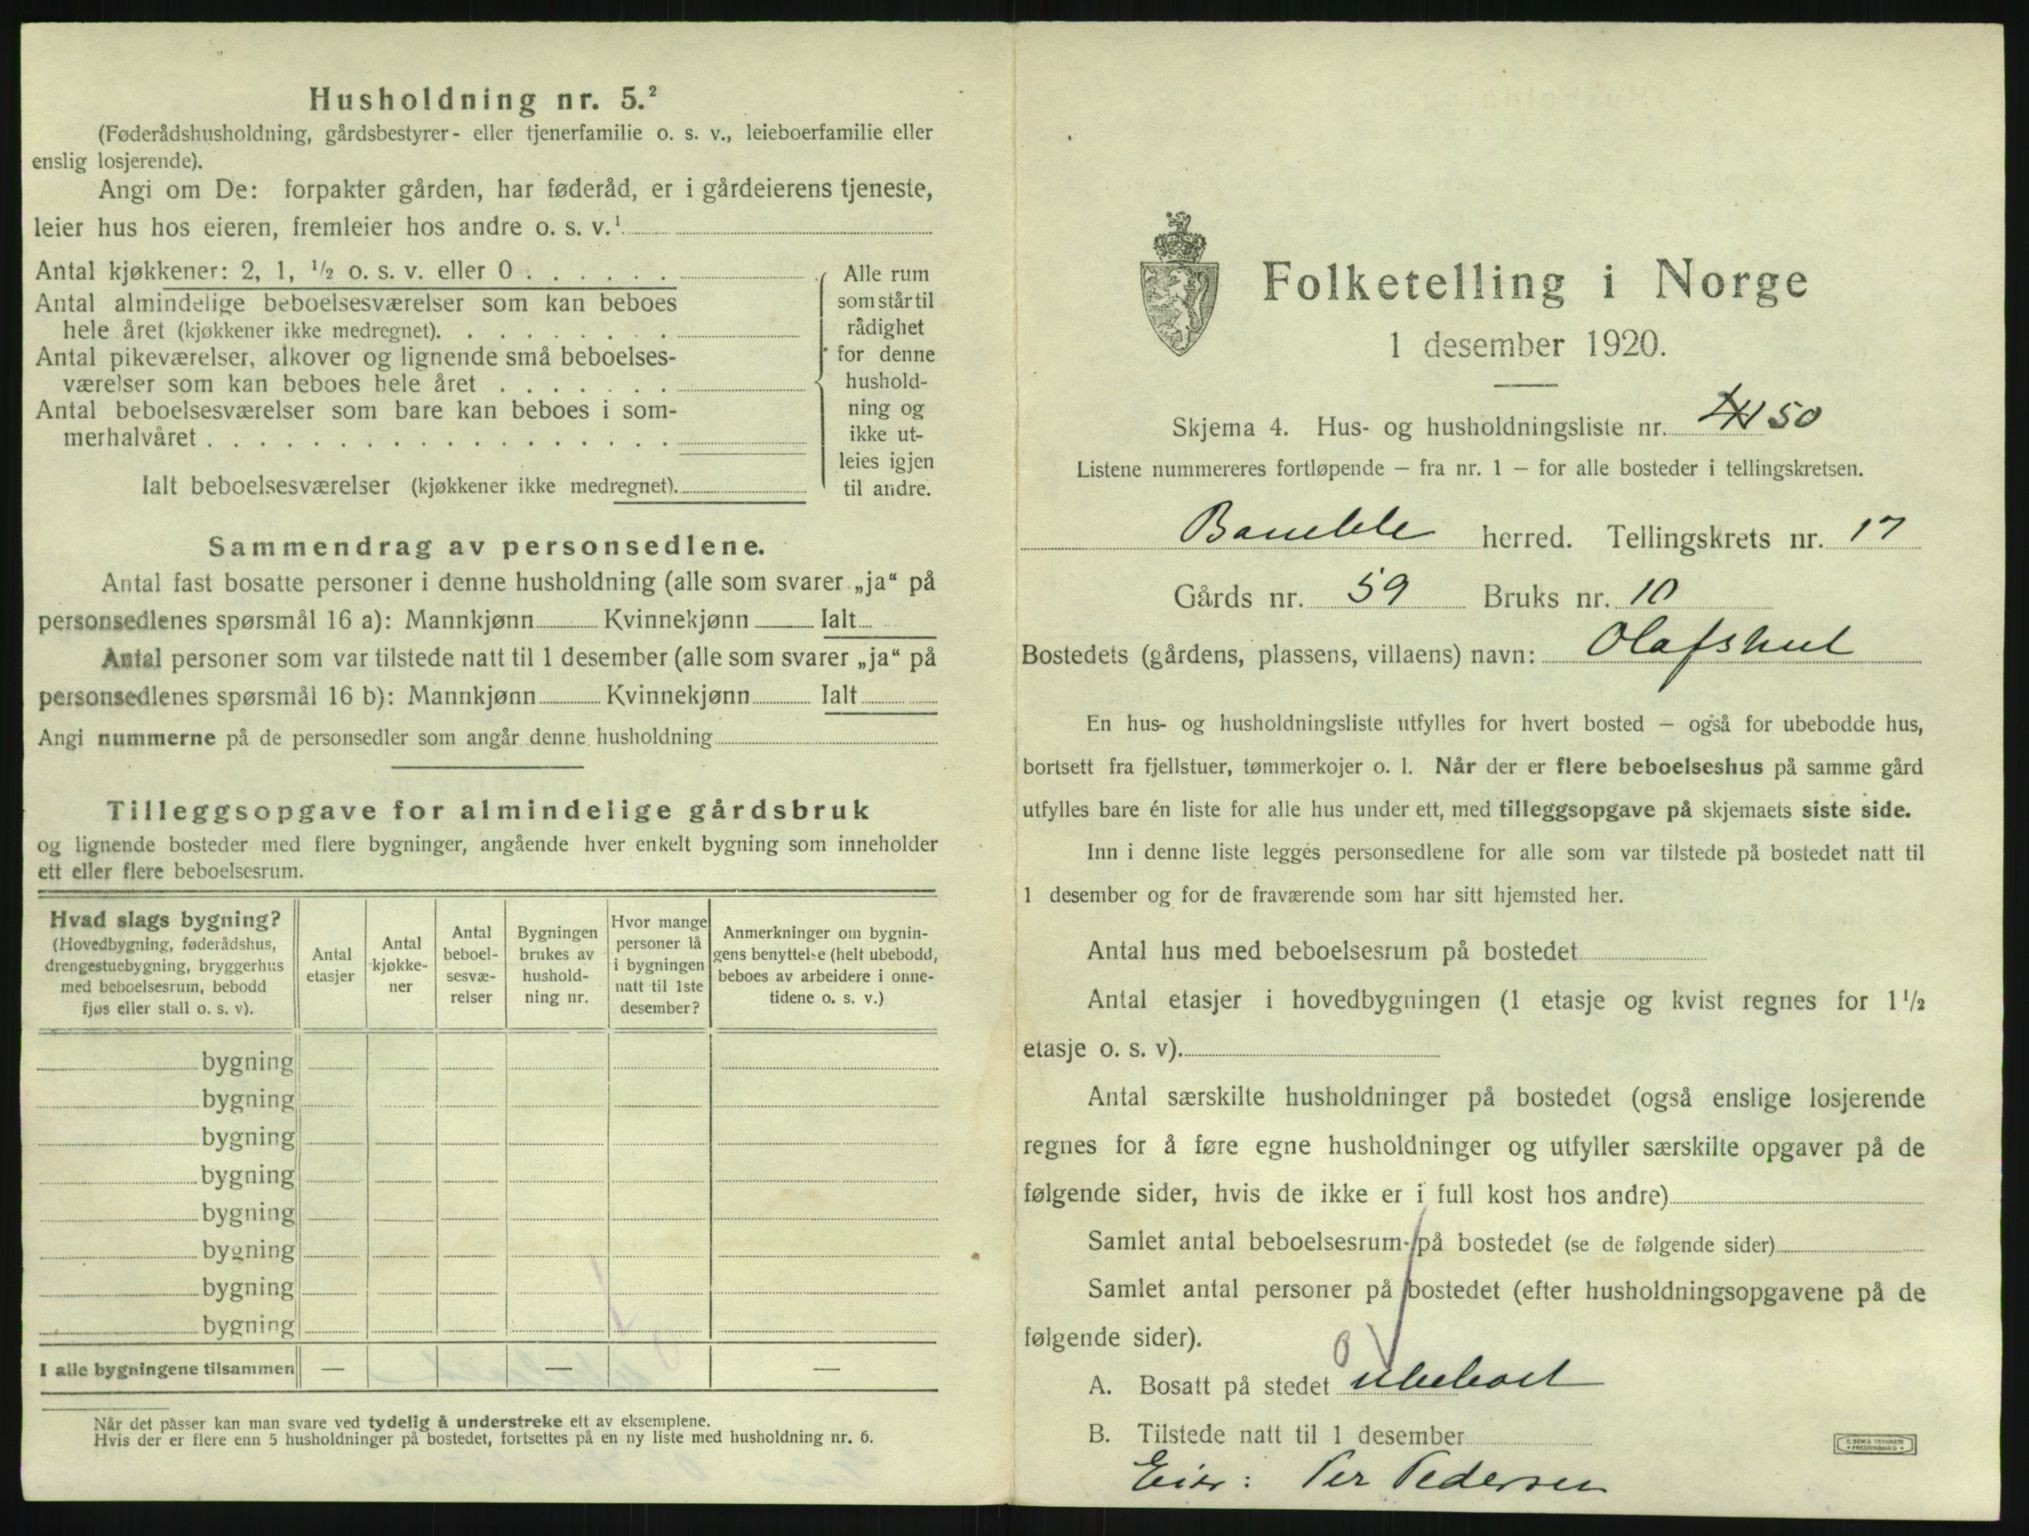 Husholdning nr. 5.²
(Føderådshusholdning, gårdsbestyrer- eller tjenerfamilie o. s. v., leieboerfamilie eller
enslig losjerende).
Angi om De: forpakter gården, har føderåd, er i gårdeierens tjeneste,
leier hus hos eieren, fremleier hos andre o. s. v.¹
Antal kjøkkener: 2, 1, ½ o. s. v. eller 0 . . . . . .
Antal almindelige beboelsesværelser som kan beboes
hele året (kjøkkener ikke medregnet). . . . . . . . .
Antal pikeværelser, alkover og lignende små beboelses-
værelser som kan beboes hele året . . . . . . .
Antal beboelsesværelser som bare kan beboes i som-
merhalvåret . . . . . . . . . . . . . . . . . .
Ialt beboelsesværelser (kjøkkener ikke medregnet).
Alle rum
som står til
rådighet
for denne
hushold-
ning og
ikke ut-
leies igjen
til andre.
Sammendrag av personsedlene.
Antal fast bosatte personer i denne husholdning (alle som svarer „ja“ på
personsedlenes spørsmål 16 a): Mannkjønn Kvinnekjønn Ialt
Antal personer som var tilstede natt til 1 desember (alle som svarer „ja“ på
personsedlenes spørsmål 16 b): Mannkjønn Kvinnekjønn Ialt
Angi nummerne på de personsedler som angår denne husholdning
Tilleggsopgave for almindelige gårdsbruk
og lignende bosteder med flere bygninger, angående hver enkelt bygning som inneholder
ett eller flere beboelsesrum.
Hvad slags bygning?
(Hovedbygning, føderådshus,
drengestuebygning, bryggerhus
med beboelsesrum, bebodd
fjøs eller stall o. s. v).
Antal
etasjer
Antal
kjøkke-
ner
Antal
beboel-
sesvæ-
relser
Bygningen
brukes av
hushold-
ning nr.
Hvor mange
personer lå
i bygningen
natt til 1ste
desember?
Anmerkninger om bygnin-
gens benyttelse (helt ubebodd,
beboes av arbeidere i onne-
tidene o. s. v.)
bygning
bygning
bygning
bygning
bygning
bygning
bygning
bygning
I alle bygningene tilsammen — — —
Når det passer kan man svare ved tydelig å understreke ett av eksemplene.
Hvis der er flere enn 5 husholdninger på bostedet, fortsettes på en ny liste med husholdning nr. 6.
Folketelling i Norge
1 desember 1920.
Skjema 4. Hus- og husholdningsliste nr. 50
Listene nummereres fortløpende – fra nr. 1 – for alle bosteder i tellingskretsen.
Bamble herred. Tellingskrets nr. 17
Gårds nr. 59 Bruks nr. 10
Bostedets (gårdens, plassens, villaens) navn: Olafshul
En hus- og husholdningsliste utfylles for hvert bosted – også for ubebodde hus,
bortsett fra fjellstuer, tømmerkojer o. l. Når der er flere beboelseshus på samme gård
utfylles bare én liste for alle hus under ett, med tilleggsopgave på skjemaets siste side.
Inn i denne liste legges personsedlene for alle som var tilstede på bostedet natt til
1 desember og for de fraværende som har sitt hjemsted her.
Antal hus med beboelsesrum på bostedet
Antal etasjer i hovedbygningen (1 etasje og kvist regnes for 1½
etasje o. s. v).
Antal særskilte husholdninger på bostedet (også enslige losjerende
regnes for å føre egne husholdninger og utfyller særskilte opgaver på de
følgende sider, hvis de ikke er i full kost hos andre)
Samlet antal beboelsesrum på bostedet (se de følgende sider)
Samlet antal personer på bostedet (efter husholdningsopgavene på de
følgende sider).
0
A. Bosatt på stedet ubeboet
B. Tilstede natt til 1 desember
Eier: Per Pedersen